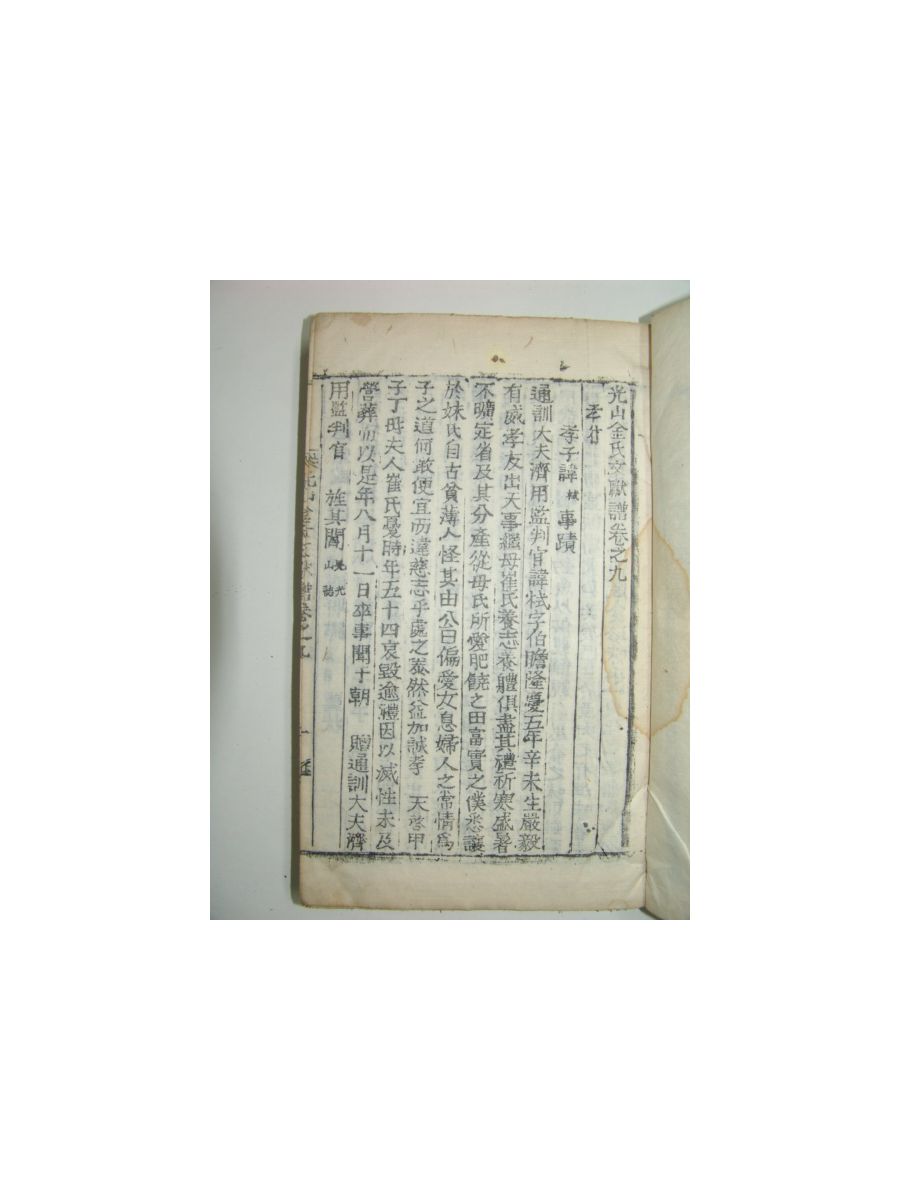 光山金氏文獻譜卷之九
孝行
孝子諱栻事蹟
通訓大夫濟用監判官諱栻字伯瞻隆慶五年辛未生嚴毅
有威孝友出天事繼母崔氏養志養體俱盡其禮祈寒盛暑
不曠定省及其分產從母氏所愛肥饒之田富實之僕悉讓
於妹氏自古貧薄人怪其由公曰偏愛女息婦人之常情爲
子之道何敢便宜而違慈志乎處之泰然益加誠孝 天啓甲
子丁母夫人崔氏憂時年五十四哀毀逾禮因以滅性未及
營葬而以是年八月十一日卒事聞于朝 贈通訓大夫濟
用監判官 旌其閭 光山誌
光山金氏文獻譜卷之九 一